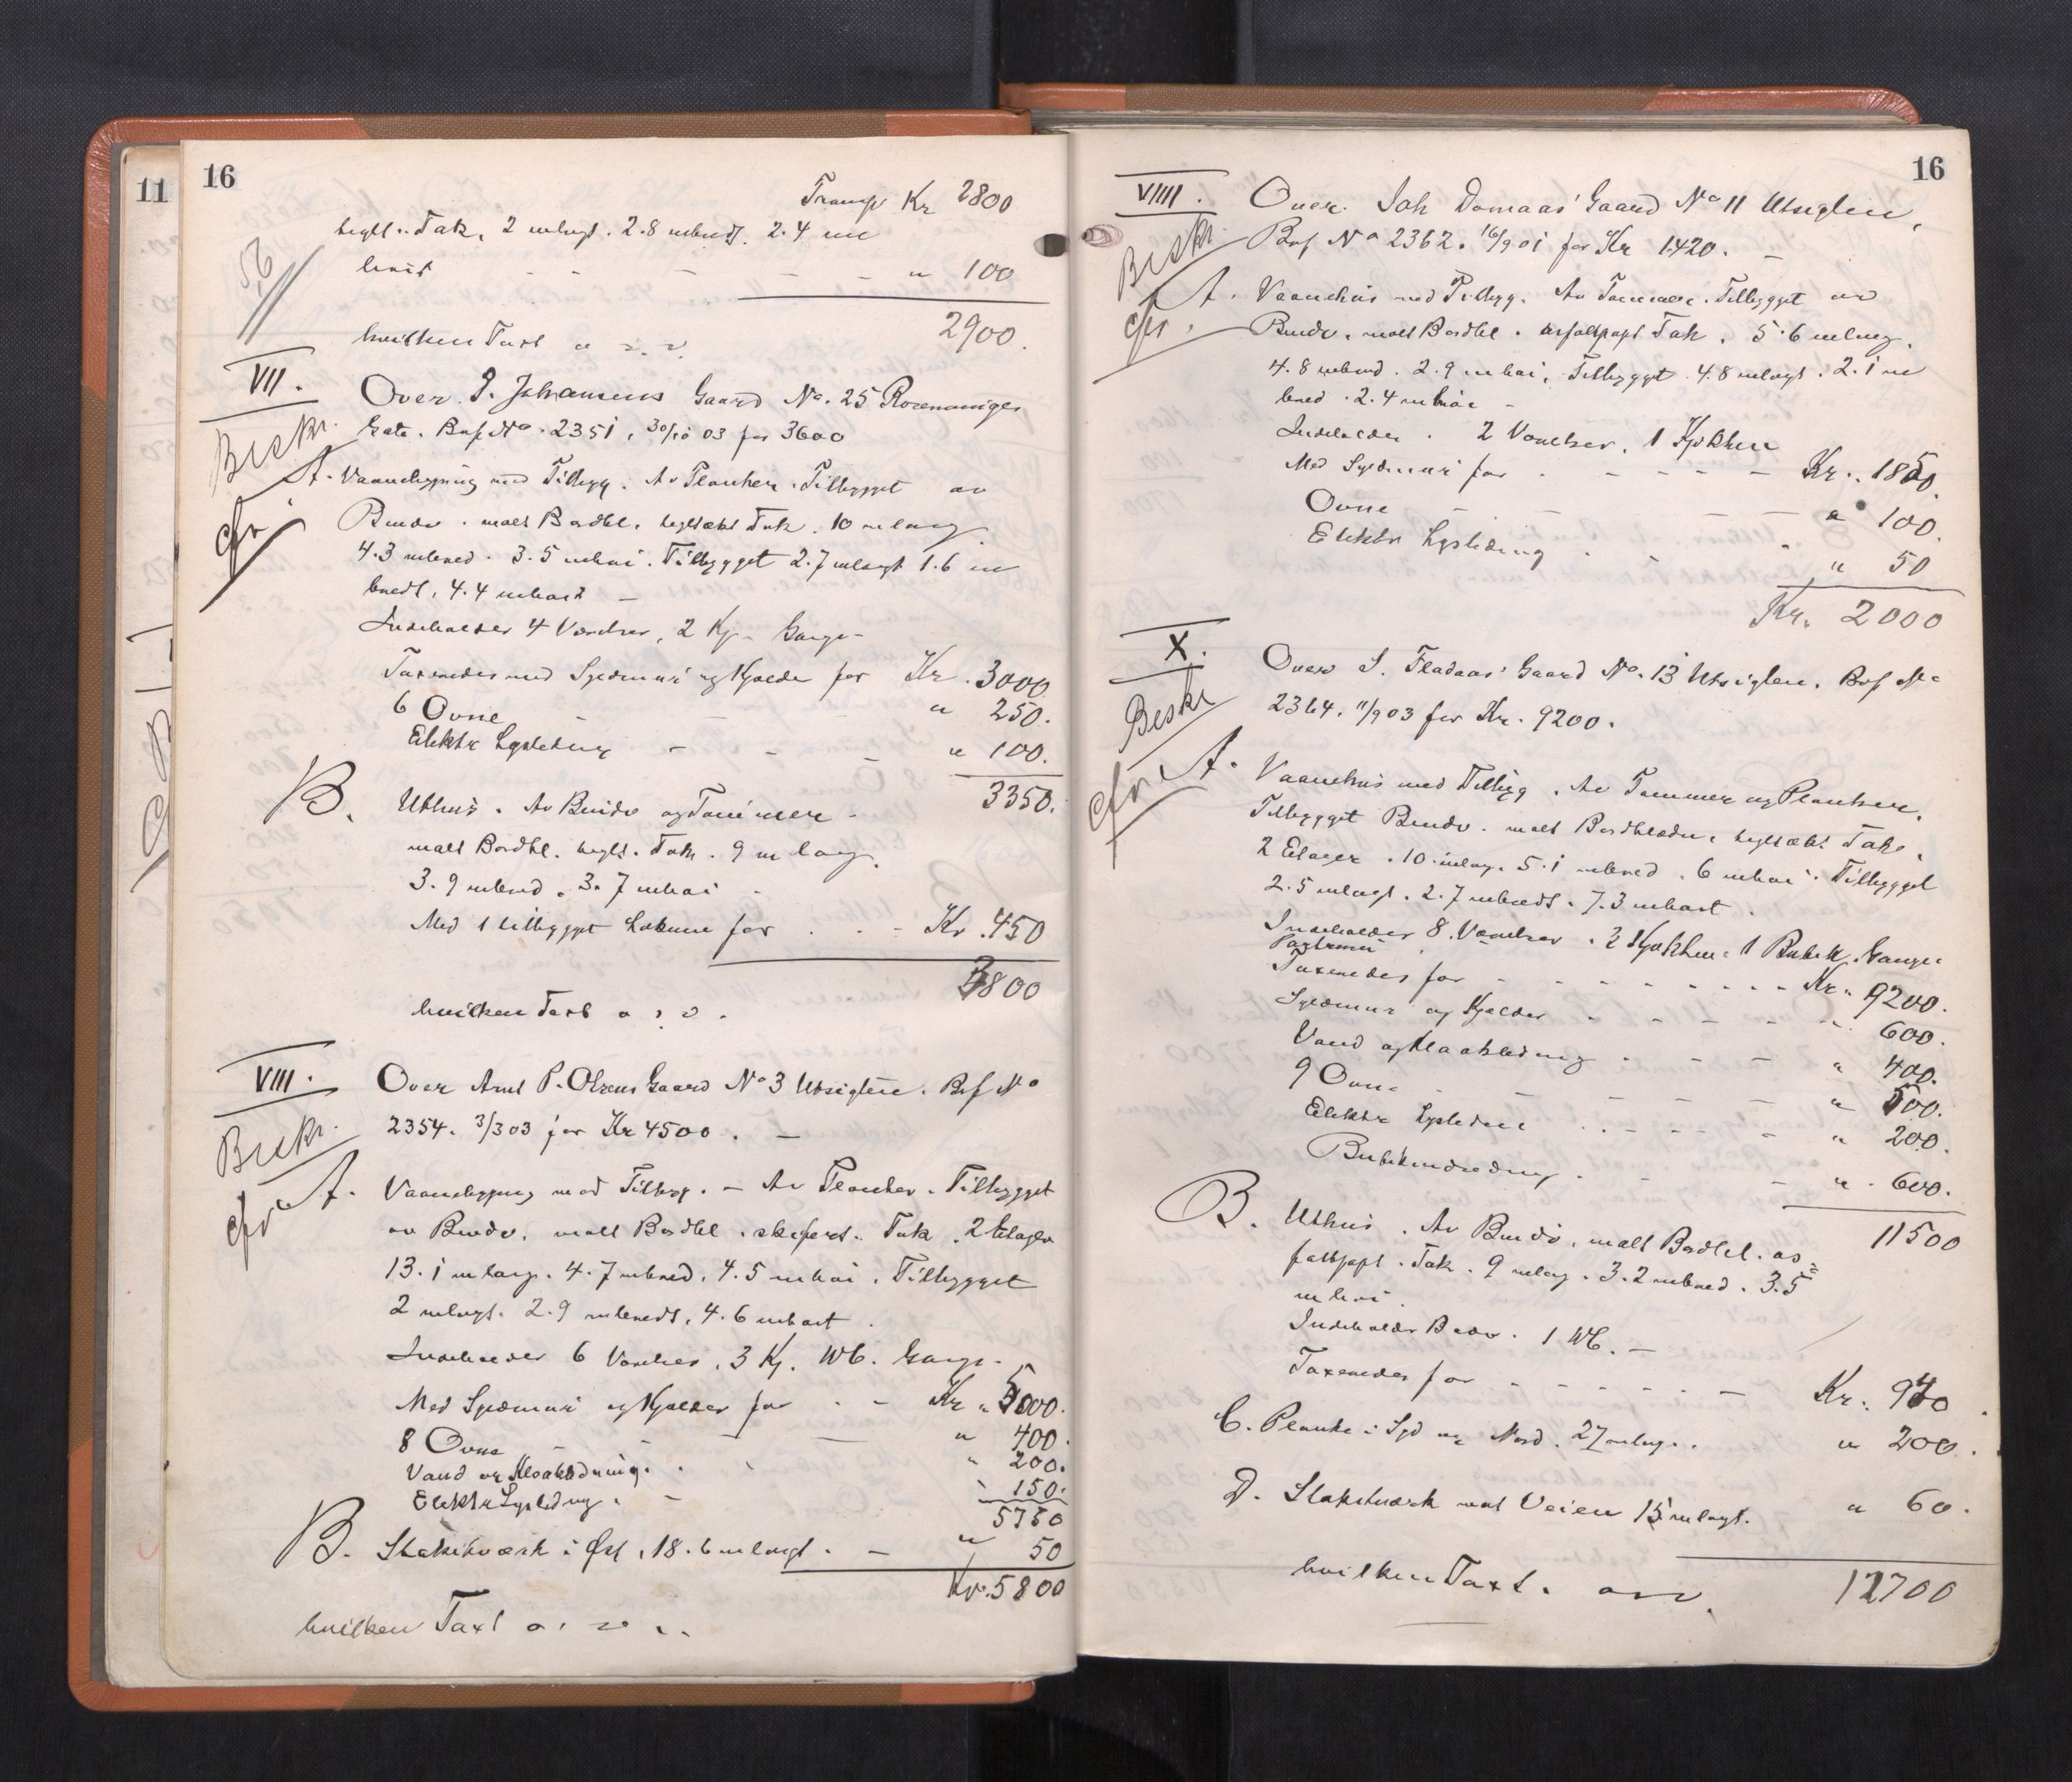 11
16
Transp Kr 2800
teglt. Tak, 2 mlngt. 2.8 mbredt. 2.4 m
høit " 100
2900.
hvilken Taxt
VII.
Over J. Johansens Gaard No. 25 Rosenborges
Gate. Bnf. No. 2351, 30/10 03 for 3600
Beskr.
cfr.
A. Vaaningsbygning med Tilbygg. Av Planker. Tilbygget av
Bindv. malt Bordkl. teglsækt Tak. 10 m lang
4.3 m bred. 3.5 m høi. Tilbygget 2.7 m langt 1.6 m
bredt, 4.4 m høit
Indeholder 4 Værelser, 2 Kj. Gange
Taxeredes med Syldmur og Kjelder for Kr. 3000
6 Ovne " 250.
Elektr Lysledning " 100.
3350.
B. Uthus. Av Bindv og Tømmer
malt Bordkl. teglt. Tak. 9 m lang.
3.9 m bred. 3.7 m høi
Med 1 tilbygget Lokum for Kr. 450
3800
hvilken Taxt
VIII.
Over Arnt P. Olsens Gaard No 3 Utsigten. Bnf No
2354. 3/3 03 for Kr 4500.
Beskr.
cfr
A. Vaaningsbygning med Tilbyg. Av Planker. Tilbygget
av Bindv. malt Bordkl. skifert. Tak. 2 Etager
13.1 m lang. 4.7 m bred. 4.5 m høi. Tilbygget
2 m langt. 2.9 m bredt, 4.6 m høit.
Indeholder 6 Værelser, 3 Kj. WC. Gange
Med Syldmur og Kjelder for Kr. 5000.
8 Ovne " 400.
Vand og Kloakledning. " 200.
Elektr Lysledning. " 150.
5750
B. Stakitværk i Øst, 18.6 m langt. " 50
Kr. 5800
hvilken Taxt
16
VIIII.
Over Joh Domaas' Gaard No 11 Utsigten,
Bnf No 2362. 16/9 01 for Kr 1420.
Beskr.
cfr.
A. Vaanehus med Tilbyg. Av Tømmer. Tilbygget av
Bindv. malt Bordkl. asfaltpapt Tak. 5.6 m lang.
4.8 m bred. 2.9 m høi. Tilbygget 4.8 m langt. 2.1 m
bred. 2.4 m høi
Indeholder 2 Værelser, 1 Kjøkken
Med Syldmur for Kr. 1850.
Ovne " 100.
Elektr Lysledning " 50
Kr. 2000
X.
Over S. Fladaas' Gaard No. 13 Utsigten. Bnf No
2364. 11/9 03 for Kr. 9200.
Beskr
cfr.
A. Vaanehus med Tilbyg. Av Tømmer og Planker.
Tilbygget Bindv. malt Bordklædn. teglsækt Tak.
2 Etager. 10 m lang. 5.1 m bred. 6 m høi. Tilbygget
2.5 m langt. 2.7 m bredt. 7.3 m høit.
Indeholder 8 Værelser. 2 Kjøkken. 1 Butik. Gange.
Taxeredes for Kr. 9200.
Syldmur og Kjelder " 600.
Vand og Kloakledning " 400.
9 Ovne " 500.
Elektr Lysledn " 200.
Butikindredning " 600.
11500
B. Uthus. Av Bindv. malt Bordkl. as=
faltpapt. Tak. 9 m lang. 3.2 m bred. 3.5
m høi.
Indeholder Bod. 1 WC.
Taxeredes for Kr. 940
C. Planke i Syd og Nord. 27 m lang. " 200.
D. Stakitværk mot Veien 15 m langt. " 60.
12700
hvilken Taxt.